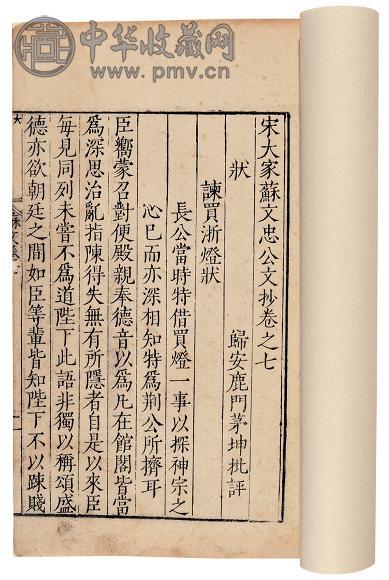 中华收藏网
www.pmv.cn
宋大家蘇文忠公文抄卷之七
歸安鹿門茅坤批評
狀
諫買浙燈狀
長公當時特借買燈一事以探神宗之
心已而亦深相知特爲荆公所擠耳
臣嚮蒙召對便殿親奉德音以爲凡在館閣皆當
爲深思治亂指陳得失無有所隱者自是以來臣
每見同列未嘗不爲道陛下此語非獨以稱頌盛
德亦欲朝廷之間如臣等輩皆知陛下不以疎賤